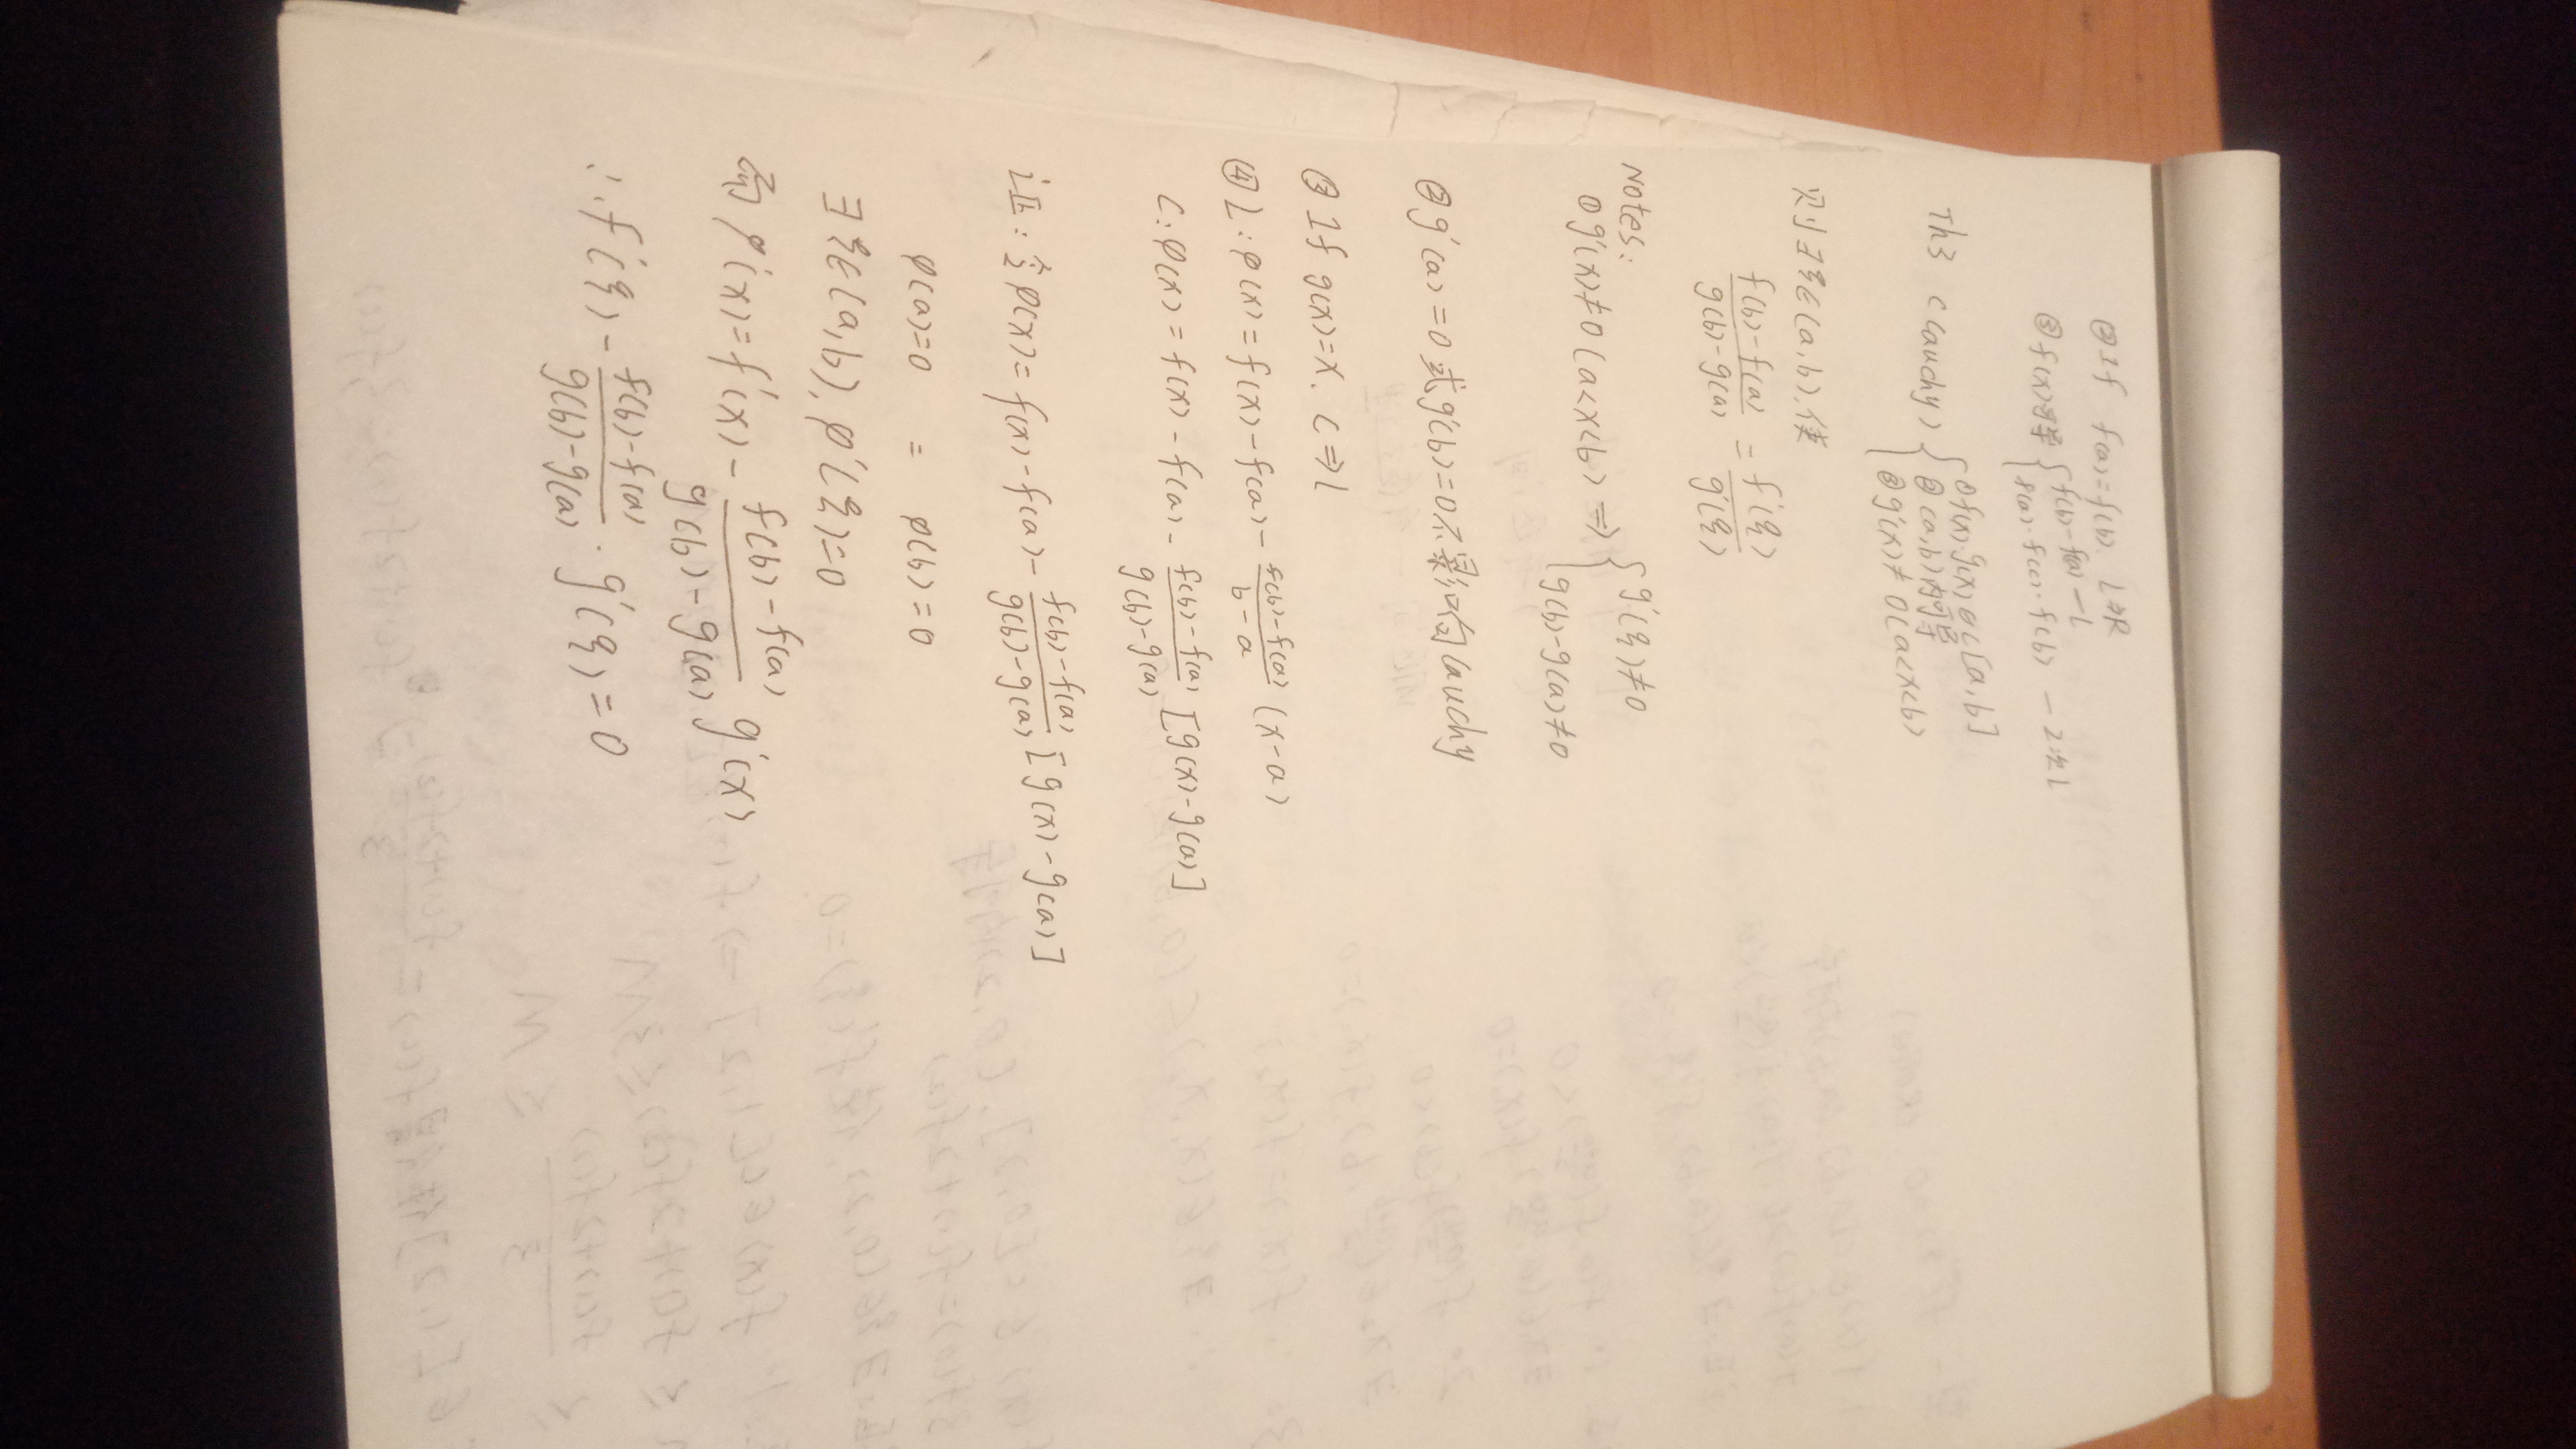 ② If f(a)=f(b), L⇒R
③ f(x)可导 { f(b)-f(a) — L
f(a), f(c), f(b) — 2次L
Th3 (Cauchy) { ① f(x), g(x)∈C[a,b]
② (a,b)内可导
③ g'(x)≠0 (a<x<b)
则∃ξ∈(a,b),使
(f(b)-f(a))/(g(b)-g(a)) = f'(ξ)/g'(ξ)
Notes:
① g'(x)≠0 (a<x<b) ⇒ { g'(ξ)≠0
g(b)-g(a)≠0
② g'(a)=0或g'(b)=0不影响Cauchy
③ If g(x)=x, C⇒L
④ L: φ(x)=f(x)-f(a)-(f(b)-f(a))/(b-a) (x-a)
C: φ(x)=f(x)-f(a)-(f(b)-f(a))/(g(b)-g(a)) [g(x)-g(a)]
证: 令φ(x)=f(x)-f(a)-(f(b)-f(a))/(g(b)-g(a)) [g(x)-g(a)]
φ(a)=0 = φ(b)=0
∃ξ∈(a,b), φ'(ξ)=0
而φ'(x)=f'(x)-(f(b)-f(a))/(g(b)-g(a)) g'(x)
∴ f'(ξ)-(f(b)-f(a))/(g(b)-g(a)) · g'(ξ)=0